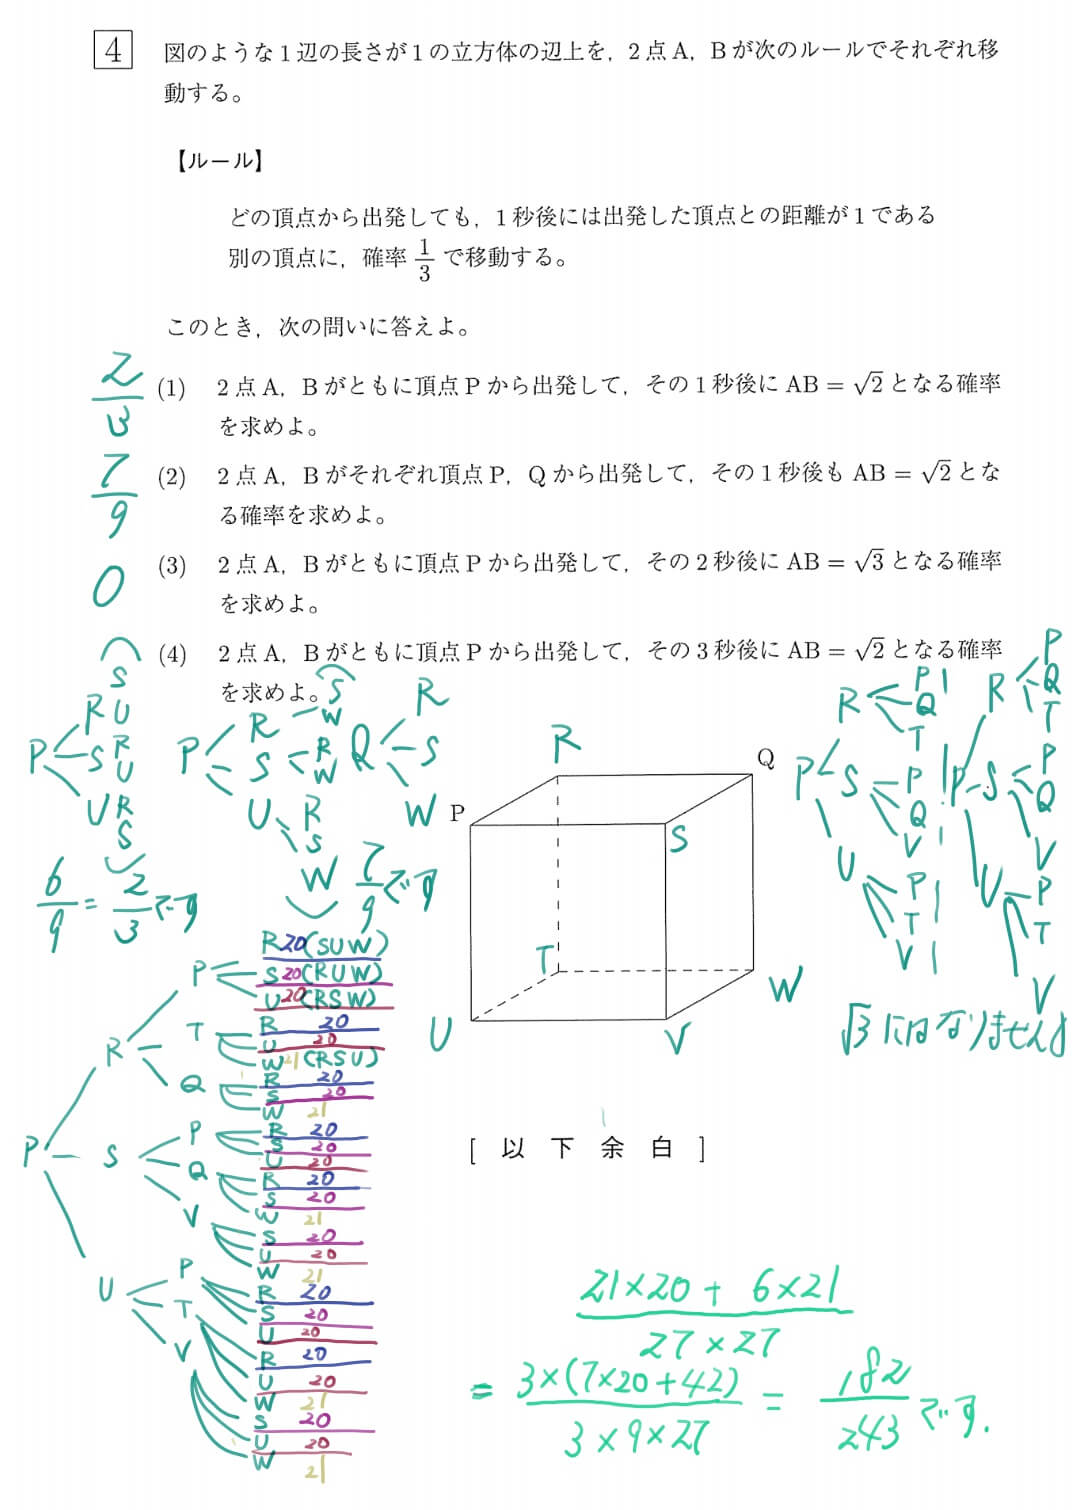 4 図のような1辺の長さが1の立方体の辺上を，2点A，Bが次のルールでそれぞれ移
動する。
【ルール】
どの頂点から出発しても，1秒後には出発した頂点との距離が1である
別の頂点に，確率 1/3 で移動する。
このとき，次の問いに答えよ。
2/3
(1) 2点A，Bがともに頂点Pから出発して，その1秒後にAB = √2となる確率
を求めよ。
7/9
(2) 2点A，Bがそれぞれ頂点P，Qから出発して，その1秒後もAB = √2とな
る確率を求めよ。
0
(3) 2点A，Bがともに頂点Pから出発して，その2秒後にAB = √3となる確率
を求めよ。
(4) 2点A，Bがともに頂点Pから出発して，その3秒後にAB = √2となる確率
を求めよ。
P R S U
S R U
U R S
6/9 = 2/3 です
P R S W
S R W
U R S W
Q R S W
7/9 です
R
Q
P
S
T
W
U
V
P R P Q T
S P Q V
U P T V
P R P Q T
S P Q V
U P T V
√3にはなりません。
P
R
P
R 20 (SUW)
S 20 (RUW)
U 20 (RSW)
T
R 20
U 20
W 21 (RSU)
Q
R 20
S 20
W 21
S
P
R 20
S 20
U 20
Q
R 20
S 20
W 21
V
S 20
U 20
W 21
U
P
R 20
S 20
U 20
T
R 20
U 20
W 21
V
S 20
U 20
W 21
[ 以 下 余 白 ]
21×20 + 6×21
27×27
= 3×(7×20+42) / 3×9×27 = 182/243 です.